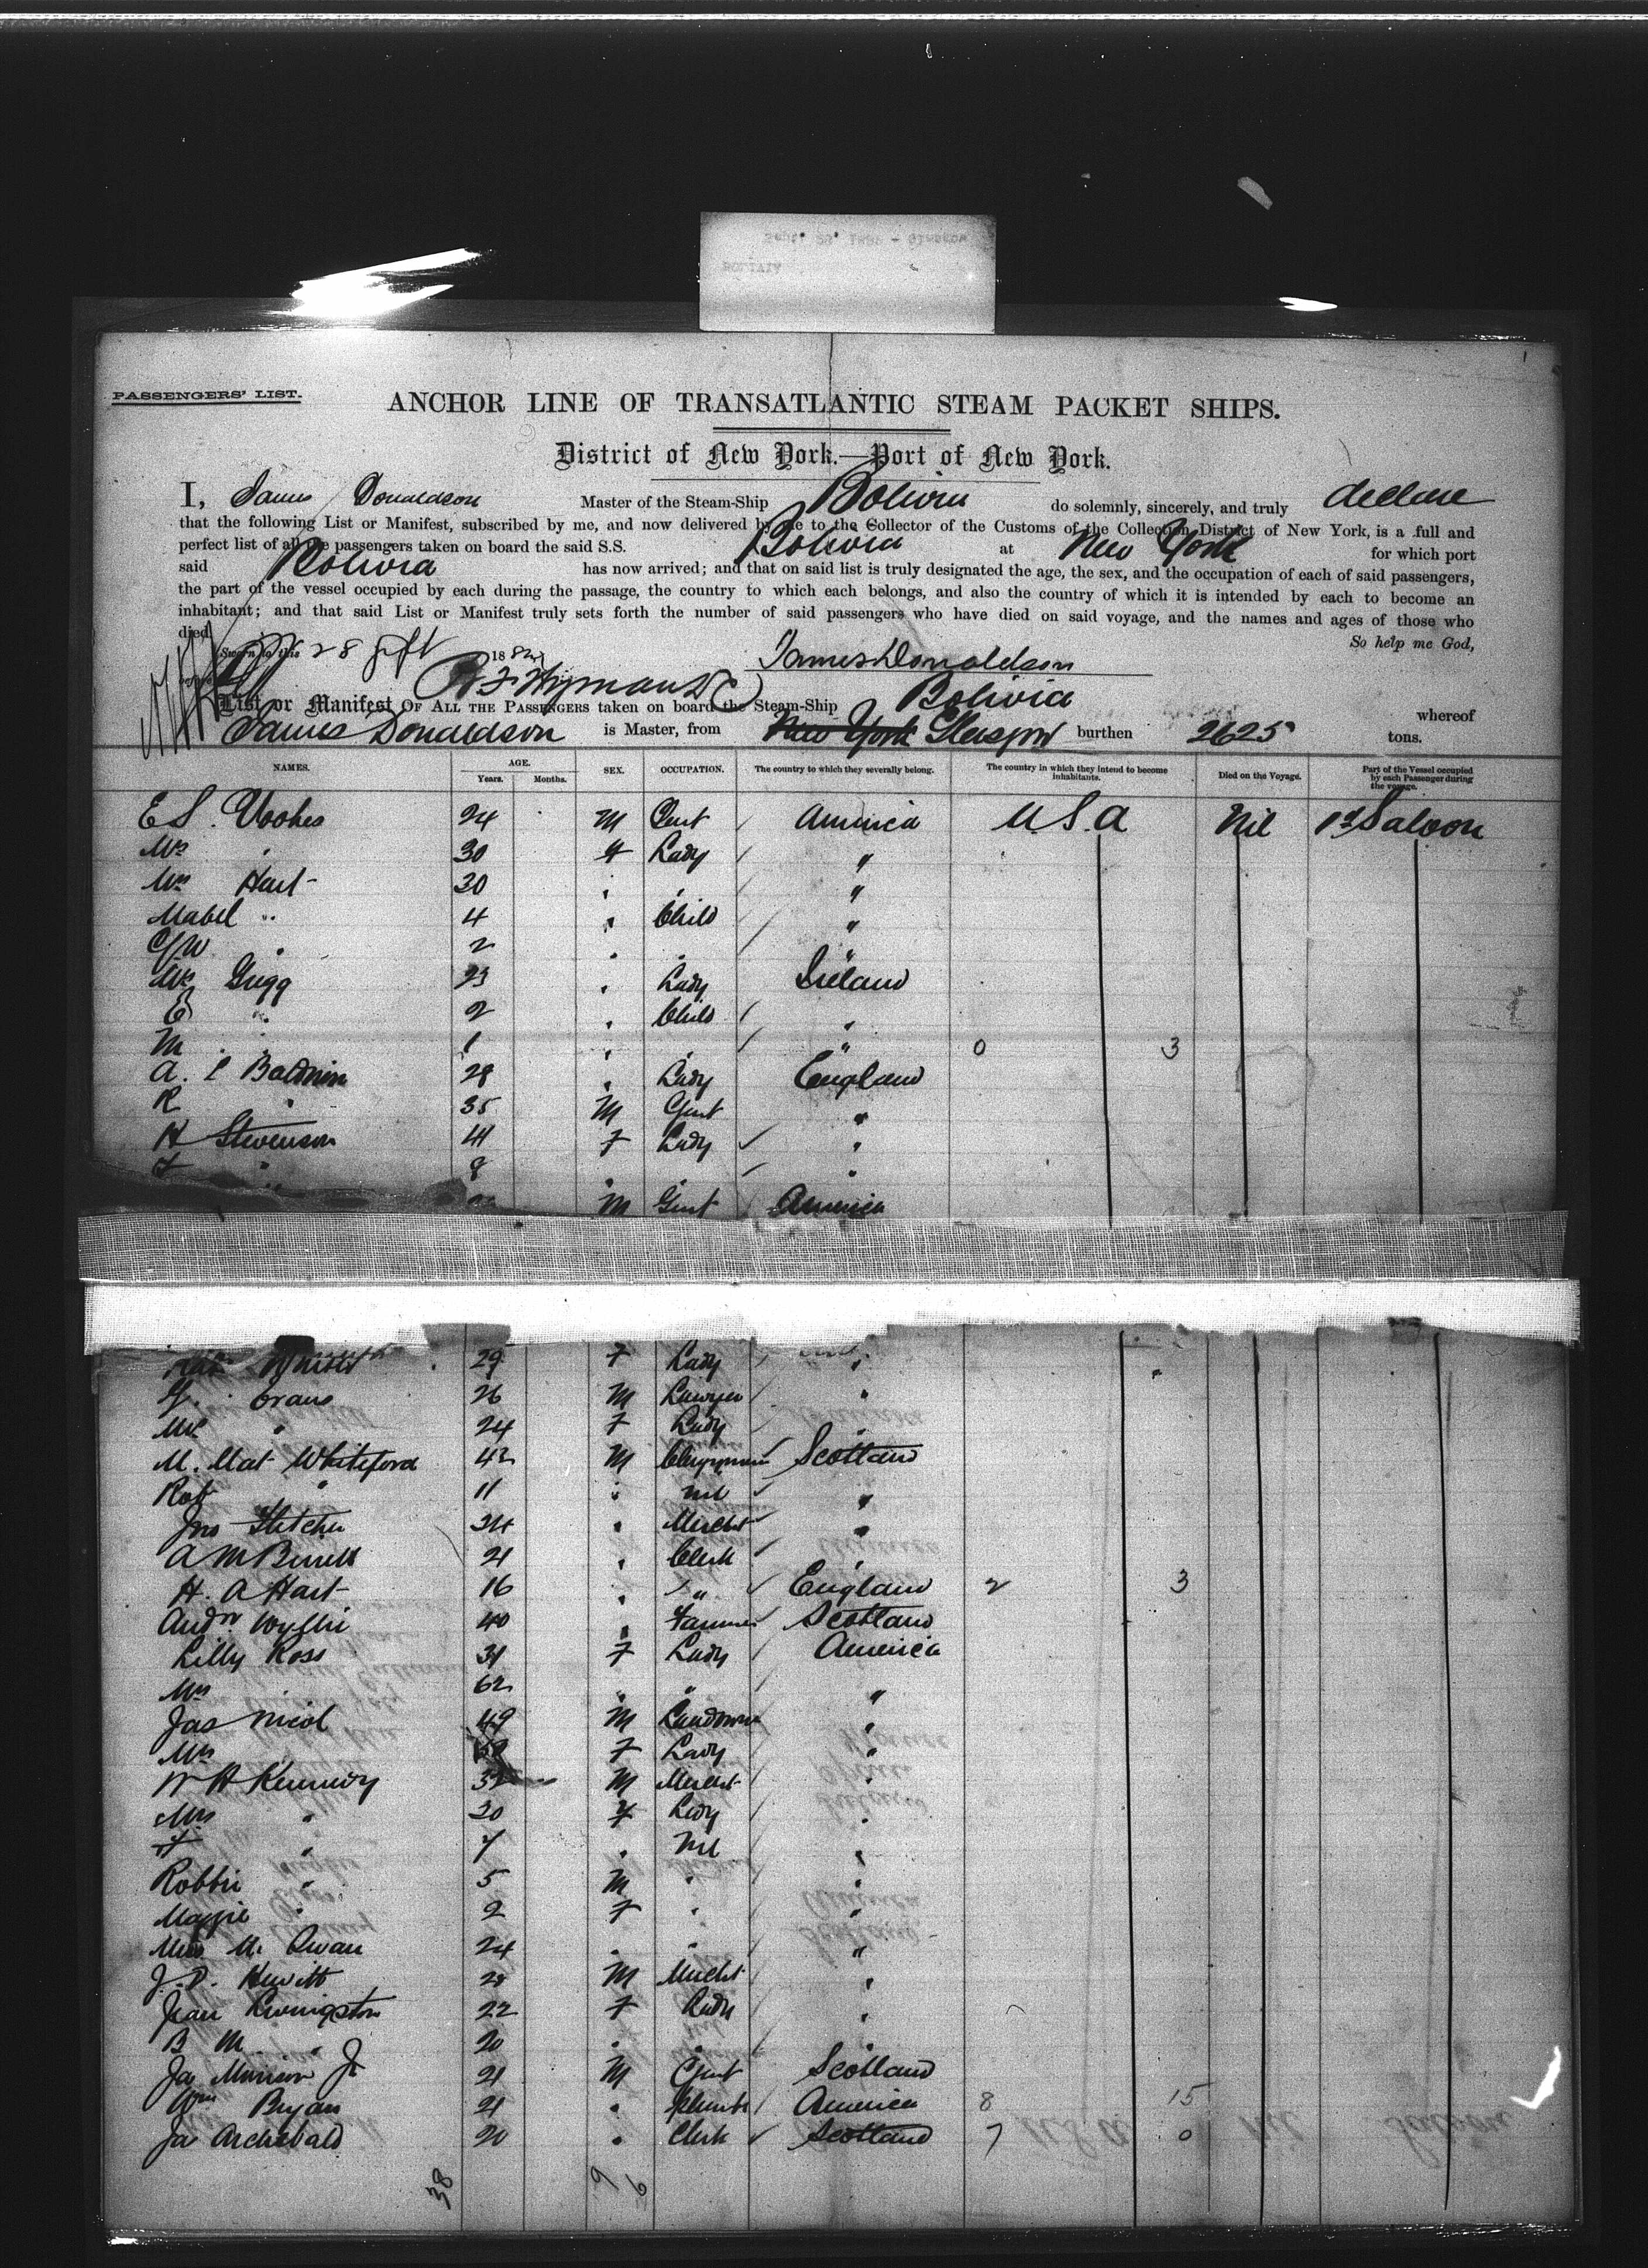 PASSENGERS' LIST.
ANCHOR LINE OF TRANSATLANTIC STEAM PACKET SHIPS.
District of New York.—Port of New York.
I, James Donaldson Master of the Steam-Ship Bolivia do solemnly, sincerely, and truly declare
that the following List or Manifest, subscribed by me, and now delivered by me to the Collector of the Customs of the Collection District of New York, is a full and
perfect list of all the passengers taken on board the said S.S. Bolivia at New York for which port
said Bolivia has now arrived; and that on said list is truly designated the age, the sex, and the occupation of each of said passengers,
the part of the vessel occupied by each during the passage, the country to which each belongs, and also the country of which it is intended by each to become an
inhabitant; and that said List or Manifest truly sets forth the number of said passengers who have died on said voyage, and the names and ages of those who
died.
So help me God,
Sworn to this 28 Sept 1882
James Donaldson
List or Manifest OF ALL THE PASSENGERS taken on board the Steam-Ship Bolivia whereof
James Donaldson is Master, from New York Glasgow burthen 2625 tons.
NAMES. AGE. Years. Months. SEX. OCCUPATION. The country to which they severally belong. The country in which they intend to become inhabitants. Died on the Voyage. Part of the Vessel occupied by each Passenger during the voyage.
E S. 24 M Gent America U S. A Nil 1st Saloon
Mrs " 30 F Lady "
Mrs Hart 30 " " "
Mabel " 4 " Child "
" 2 " " "
Mrs Grigg 23 " Lady Ireland
E " 2 " Child "
M " 1 " " " 0 3
A. Baldwin 28 " Lady England
R " 35 M Gent "
H Stevenson 41 F Lady "
" 8 " " "
M Gent America
29 F Lady "
G. Evans 26 M Lawyer "
Mrs " 24 F Lady "
M. Mat Whiteford 42 M Clergyman Scotland
Rob " 11 " Nil "
Jno Fletcher 34 " Mercht "
A M 21 " Clerk "
H. A Hart 16 " " England 2 3
Andw Wyllie 40 " Farmer Scotland
Lilly Ross 31 F Lady America
Mrs 62 " " "
Jas Nicol 49 M Landowner "
Mrs F Lady "
W H Kennedy 32 M Mercht "
Mrs " 30 F Lady "
F " 7 " Nil "
Robbie " 5 M " "
Maggie " 2 F " "
Miss M. Swan 24 " " "
J. D. Hewitt 28 M Mercht "
Jean Livingston 22 F Lady "
B M. " 20 " " "
Ja Morrison Jr 21 M Gent Scotland
Wm Bryan 21 " Plumber America 8 15
Ja Archibald 20 " Clerk Scotland 7 0
38 9 6